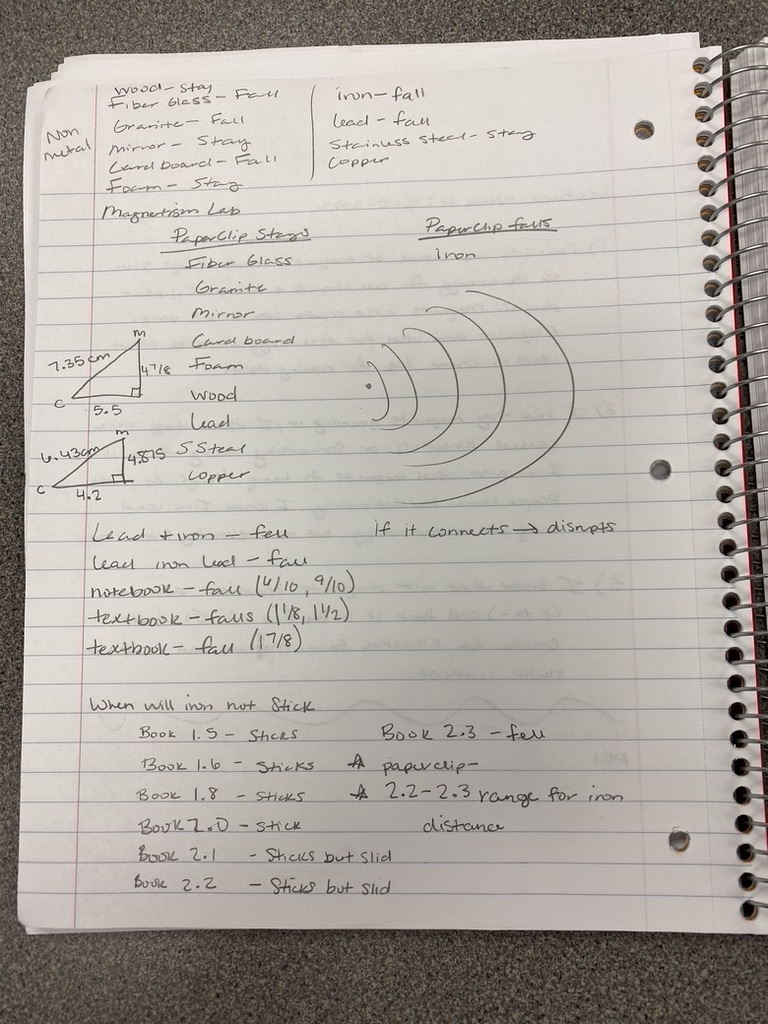 Non metal
wood - Stay
Fiber Glass - Fall
Granite - Fall
Mirror - Stay
Cardboard - Fall
Foam - Stay
iron - fall
lead - fall
Stainless Steal - Stay
Copper
Magnetism Lab
Paperclip Stays
Fiber Glass
Granite
Mirror
Cardboard
Foam
Wood
Lead
S Steal
Copper
Paperclip falls
iron
m
7.35cm
4 7/8
C
5.5
m
6.43cm
4.875
C
4.2
Lead + iron - fell
If it connects → disrupts
lead iron lead - fall
notebook - fall (4/10, 9/10)
textbook - falls (1 1/8, 1 1/2)
textbook - fall (1 7/8)
When will iron not Stick
Book 1.5 - Sticks
Book 1.6 - Sticks
Book 1.8 - Sticks
Book 2.0 - Stick
Book 2.1 - Sticks but slid
Book 2.2 - Sticks but slid
Book 2.3 - fell
☆ paperclip -
☆ 2.2 - 2.3 range for iron
distance